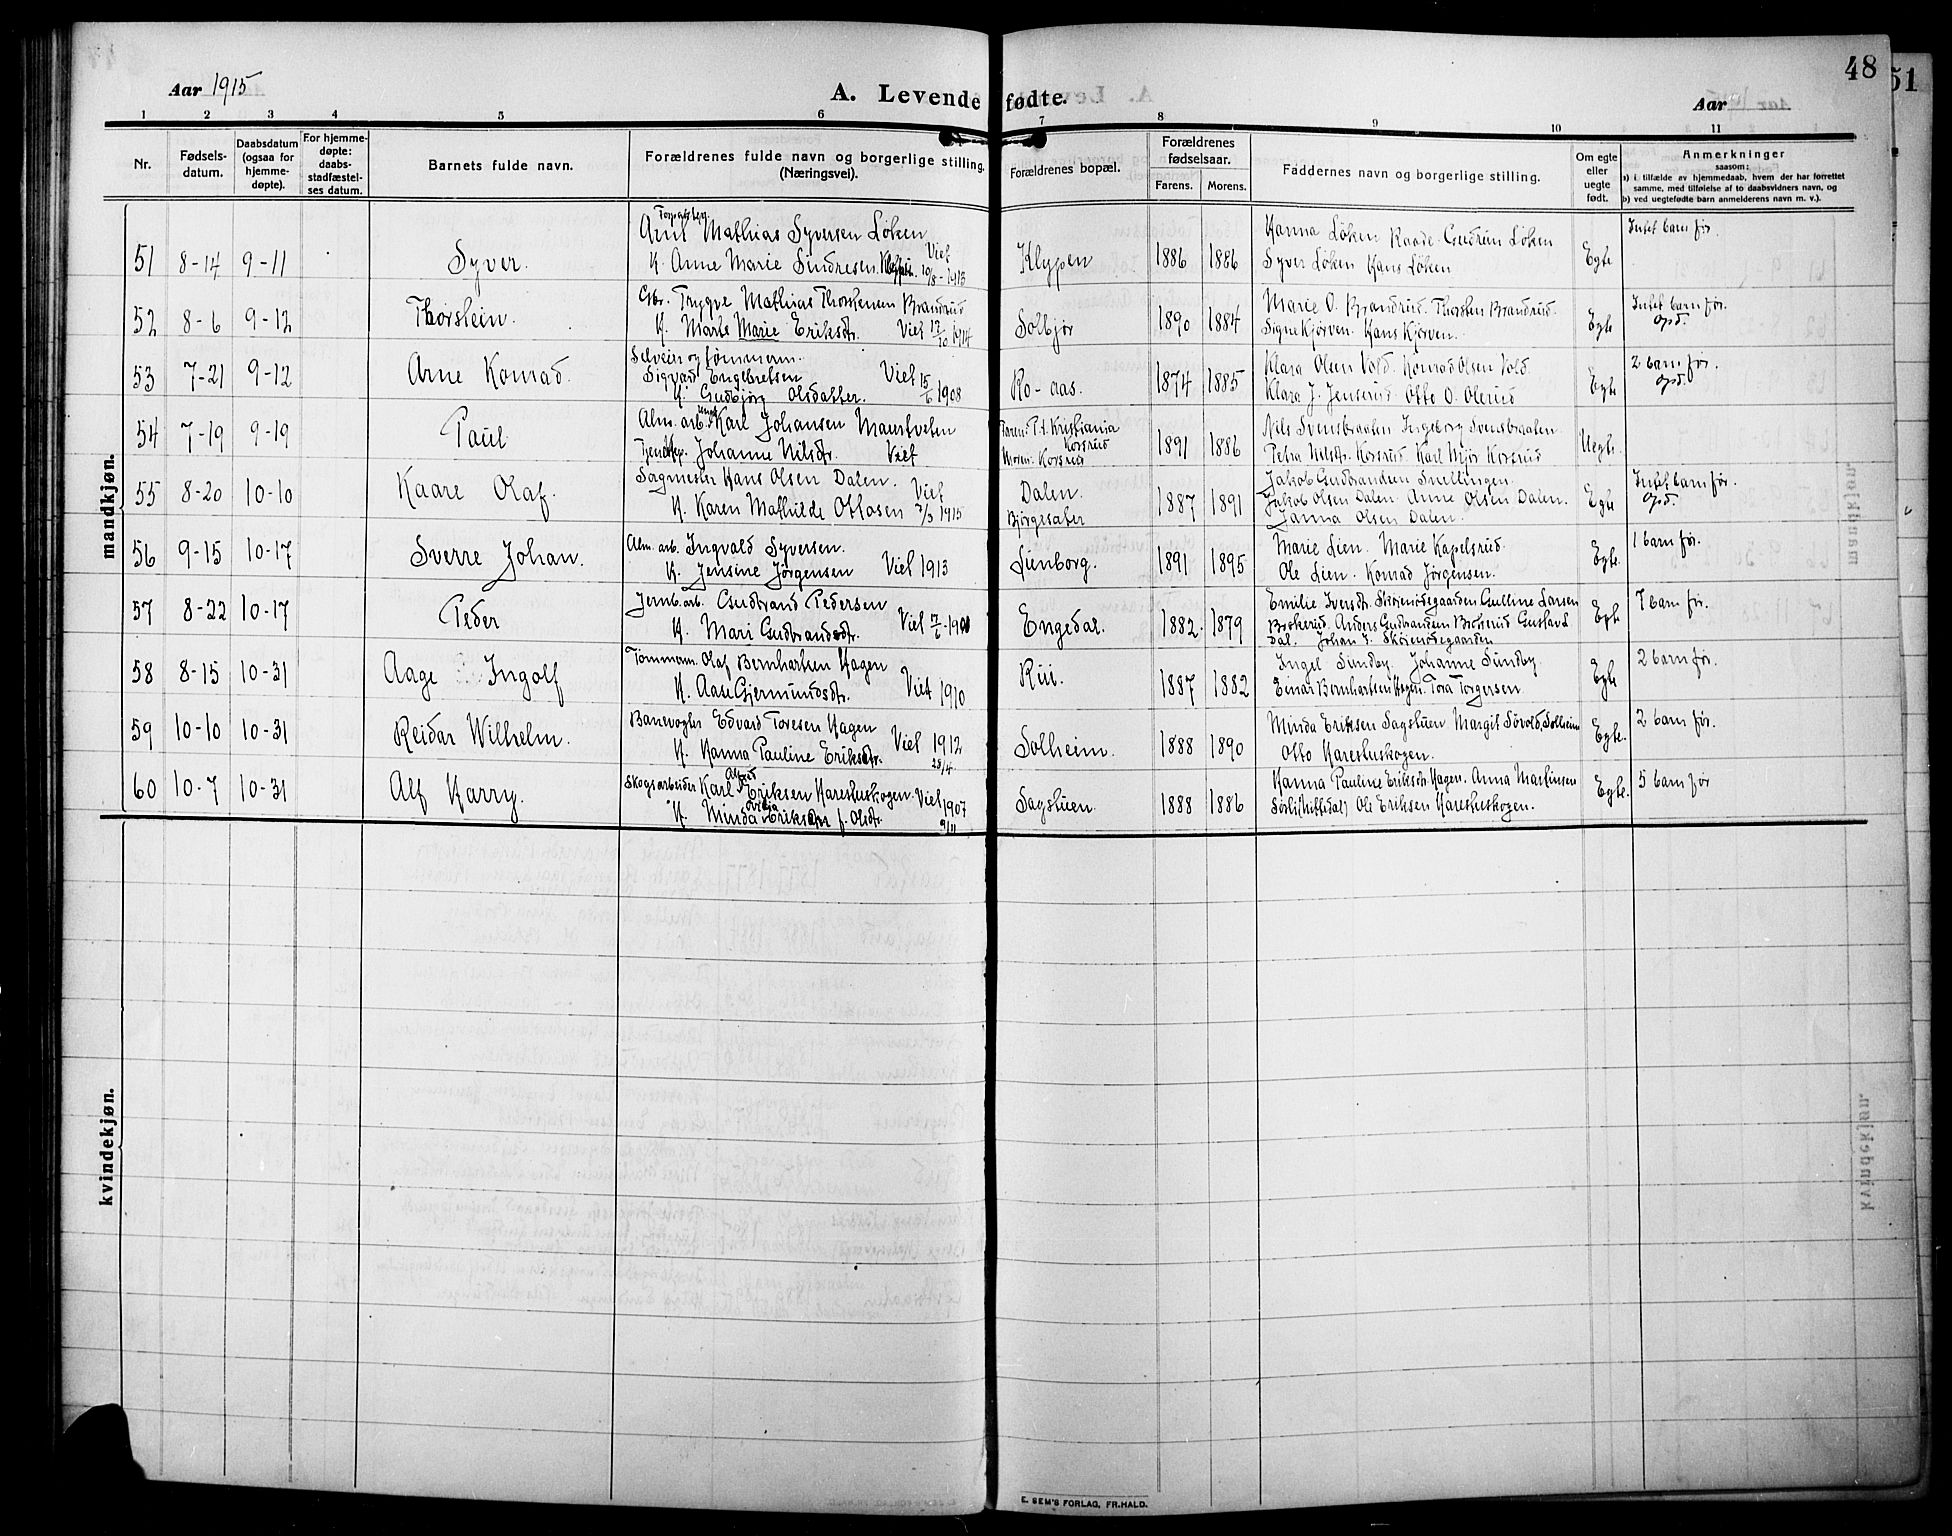 48
51
Aar 1915
A. Levende fødte.
Aar
1 2 3 4 5 6 7 8 9 10 11
Nr.
Fødsels-
datum.
Daabsdatum
(ogsaa for
hjemme-
døpte).
For hjemme-
døpte:
daabs-
stadfæstel-
ses datum.
Barnets fulde navn.
Forældrenes fulde navn og borgerlige stilling.
(Næringsvei).
Forældrenes bopæl.
Forældrenes
fødselsaar.
Farens. Morens.
Faddernes navn og borgerlige stilling.
Om egte
eller
uegte
født.
Anmerkninger
saasom:
a) i tilfælde av hjemmedaab, hvem der har forrettet
samme, med tilføielse af to daabsvidners navn, og
b) ved uegtefødte barn anmelderens navn m. v.).
mandkjøn.
51 8-14 9-11 Syver.
Mathias Syversen Løken
K. Anne Marie Sindresen. Viet 10/8-1913
Klypen 1886 1886
Hanna Løken Raade. Gudrun Løken
Syver Løken Hans Løken
Egte
Intet barn før.
52 8-6 9-12 Thorstein.
Gbr. Trygve Mathias Thorstensen Brandrud
K. Marte Marie Eriksdtr. Viet 17/10 1914
Solbjør 1890 1884
Marie O. Brandrud. Thorsten Brandrud.
Signe Kjørven. Hans Kjørven.
Egte
Intet barn før.
Opd.
53 7-21 9-12 Arne Konrad.
Selveier og tømmerm.
Sigvad Engebretsen Viet 15/6 1908
K. Gudbjørg Olsdatter.
Ro-aas. 1874 1885
Klara Olsen Vold. Konrad Olsen Vold.
Klara J. Jensrud. Otto O. Olerud
Egte
2 barn før.
Opd.
54 7-19 9-19 Paul
Alm. arb. ungk. Karl Johansen Maurtveten
Johanne Nilsdtr. Viet
Faren: P.t. Kristiania
Korsrud
Moren: Korsrud
1891 1886
Nils Svensbraaten Ingeborg Svensbraaten.
Petra Nilsdtr. Korsrud Karl Mjør Korsrud
Uegte.
55 8-20 10-10 Kaare Olaf.
Sagmester Hans Olsen Dalen.
K. Karen Mathilde Ottosen Viet 7/3 1915
Dalen.
Bjørgesæter
1887 1891
Jakob Gudbrandsen Snellingen.
Jakob Olsen Dalen. Anne Olsen Dalen.
Janna Olsen Dalen.
Egte
Intet barn før.
Opd.
56 9-15 10-17 Sverre Johan.
Alm. arb. Ingvald Syversen.
K. Jensine Jørgensen Viet 1913
Lienborg. 1891 1895
Marie Lien. Marie Kapelsrud.
Ole Lien. Konrad Jørgensen.
Egte.
1 barn før.
57 8-22 10-17 Peder
Jernb. arb. Gudbrand Pedersen
K. Mari Gudbrandsdtr. Viet
Engedal. 1882 1879
Emilie Iversdtr. Skøienødegaarden Gulline Larsen
Brokerud. Anders Gudbrandsen Brokerud Gustav L
Dal. Johan J. Skøienødegaarden
Egte
7 barn før.
58 8-15 10-31 Aage Ingolf
Tømmerm. Olaf Bernhartsen Hagen
K. Aase Gjermundsdtr. Viet 1910
Rui. 1887 1882
Ingel Sundby. Johanne Sundby.
Einar Bernhartsen Hagen. Tora Torgersen.
Egte
2 barn før.
59 10-10 10-31 Reidar Wilhelm.
Banevogter Edvard Toresen Hagen
K. Hanna Pauline Eriksdtr. Viet 1912
28/4
Solheim. 1888 1890
Minda Eriksen Sagstuen Margit Søvold, Solheim
Otto Harestuskogen.
Egte.
2 barn før.
60 10-7 10-31 Alf Harry.
Alfred
Skogsarbeider Karl Eriksen Harestuskogen Viet 1907
K. Minda Eriksen f. Olsdtr. 9/11
Sagstuen. 1888 1886
Hanna Pauline Eriksdtr. Hagen. Anna Martinsen
Sørli (Nittedal) Ole Eriksen Harestuskogen.
Egte.
5 barn før
kvindekjøn.
E. SEM'S FORLAG, FR.HALD.